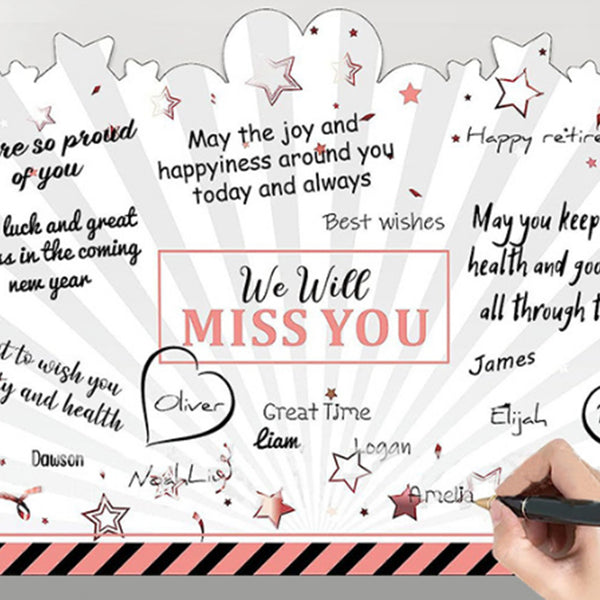 May the joy and
happyiness around you
today and always
Happy
re so proud
of you
Best wishes
luck and great
in the coming
new year
May you keep
health and
all through
We Will
MISS YOU
to wish you
and health
James
Oliver
Great Time
Elijah
Liam
Logan
Dawson
Noah Liu
Amelia